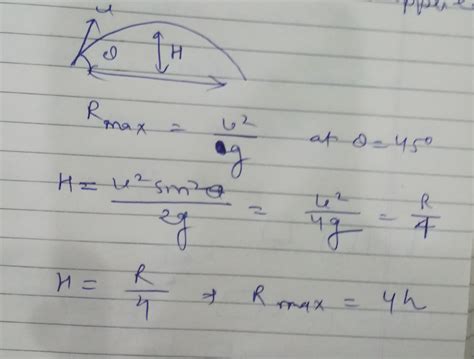 u
θ H
R max = u² / g at θ = 45°
H = u² sin² θ / 2g = u² / 4g = R / 4
H = R / 4 ⇒ R max = 4h